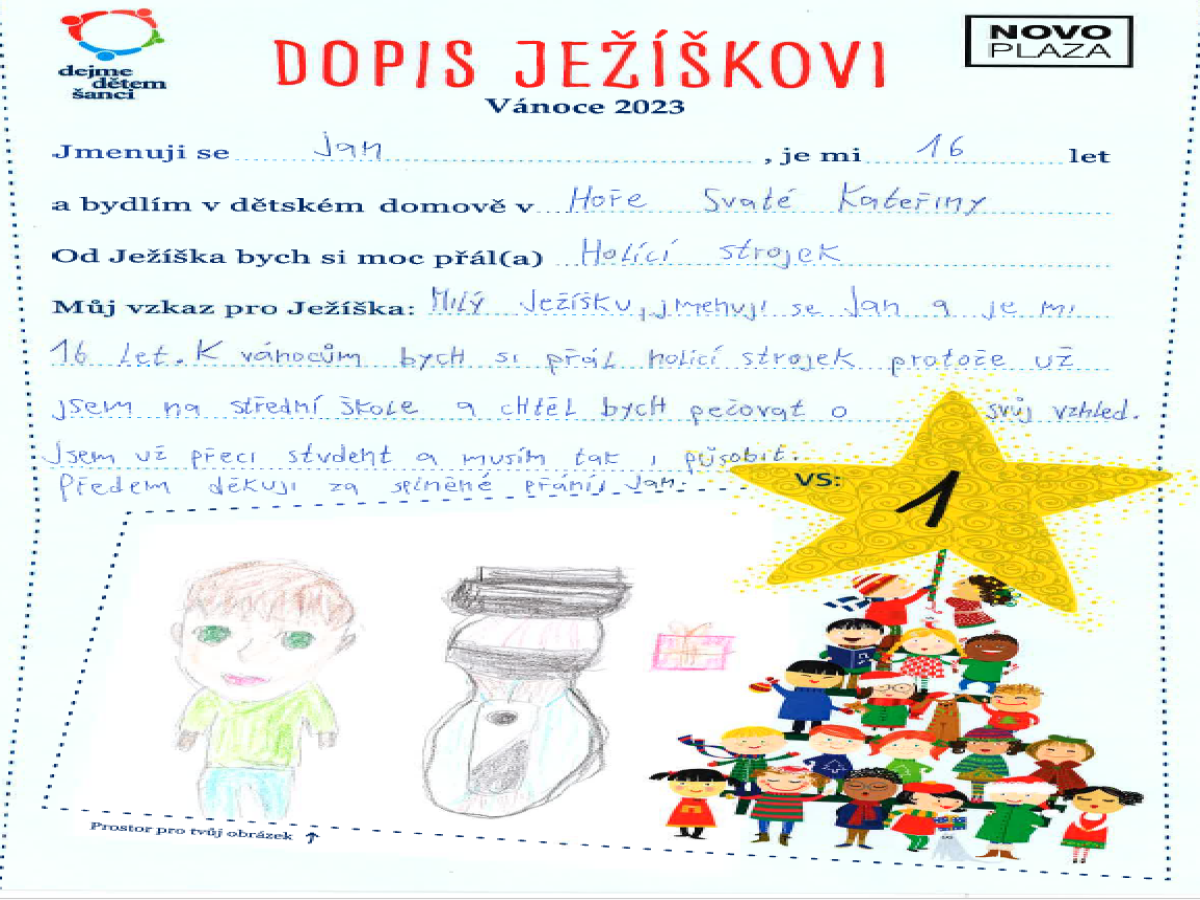 dejme
dětem
šanci
NOVO
PLAZA
DOPIS JEŽÍŠKOVI
Vánoce 2023
Jmenuji se Jan, je mi 16 let
a bydlím v dětském domově v Hoře Svaté Kateřiny
Od Ježíška bych si moc přál(a) Holící strojek
Můj vzkaz pro Ježíška: Milý Ježíšku, jmenuji se Jan a je mi
16 let. K vánocům bych si přál holicí strojek protože už
jsem na střední škole a chtěl bych pečovat o svůj vzhled.
Jsem už přeci student a musím tak i působit.
Předem děkuji za splněné přání, Jan.
VS: 1
Prostor pro tvůj obrázek